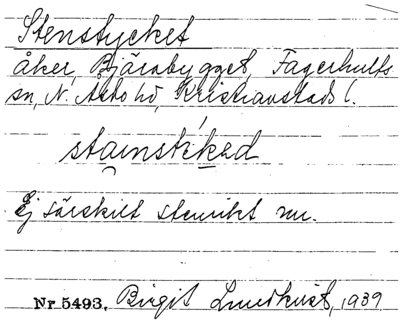 Stenstycket
åker, Bjärabygget, Fagerhults
sn, N. Åsbo hd, Kristianstads l.
stainstikkad
Ej särskilt stenrikt nu.
Nr 5493. Birgit Lundkvist, 1939